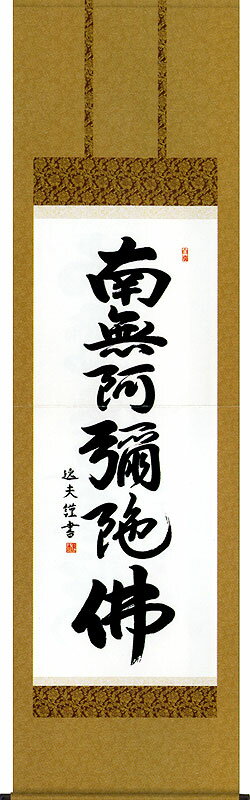 南無阿彌陀佛
逸夫謹書